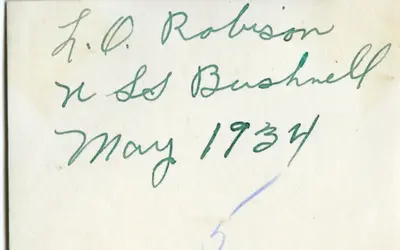 L.O. Robison
U SS Bushnell
May 1934
5